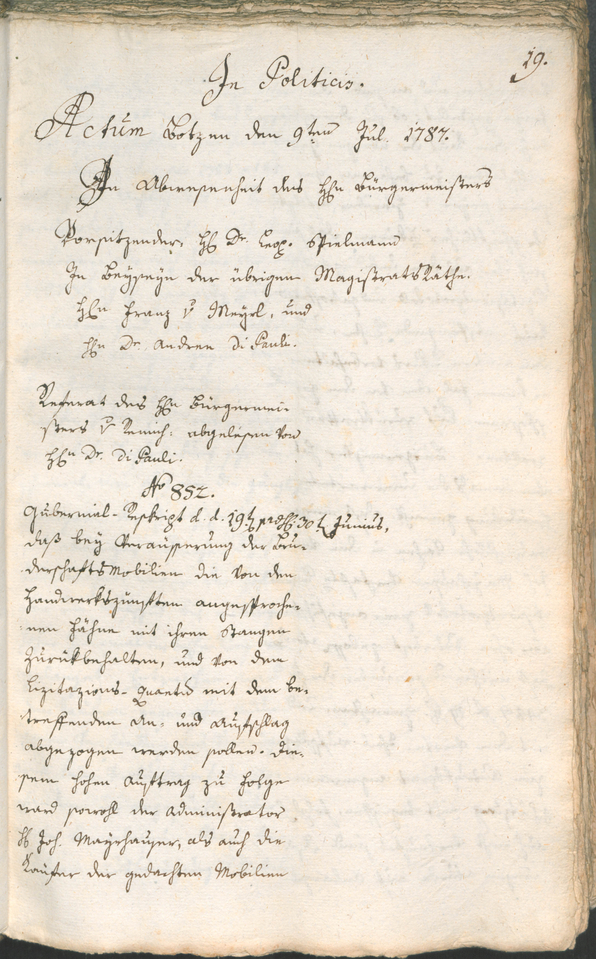 19.
In Politicis.
Actum Botzen den 9ten Jul. 1787.
In Abwesenheit des Hhn Bürgermeisters
Vorsitzender H Dr. Leop. Spielmann
In Beyseyn der übrigen Magistrats Räthe.
Hhn Franz v Mayrl, und
Hhn Dr. Andreen Di Pauli.
Referat des Hhn Bürgermei-
sters v abgelesen von
Hhn Dr. Di Pauli.
No 852.
Gubernial-Reskript d. d. 19t 30t Junius,
daß bey Veräusserung der Bru-
derschafts Mobilien die von den
Handwerkszunften angesproche-
nen Fahne mit ihren Stangen
zurükbehalten, und von dem
Lizitazions-quanto mit dem be-
treffenden An- und Aufschlag
abgezogen werden sollen. Die-
sem hohen Auftrag zu Folge
ward sowohl der Administrator
H Joh. Mayrhauser, als auch die
Käufer der gedachten Mobilien